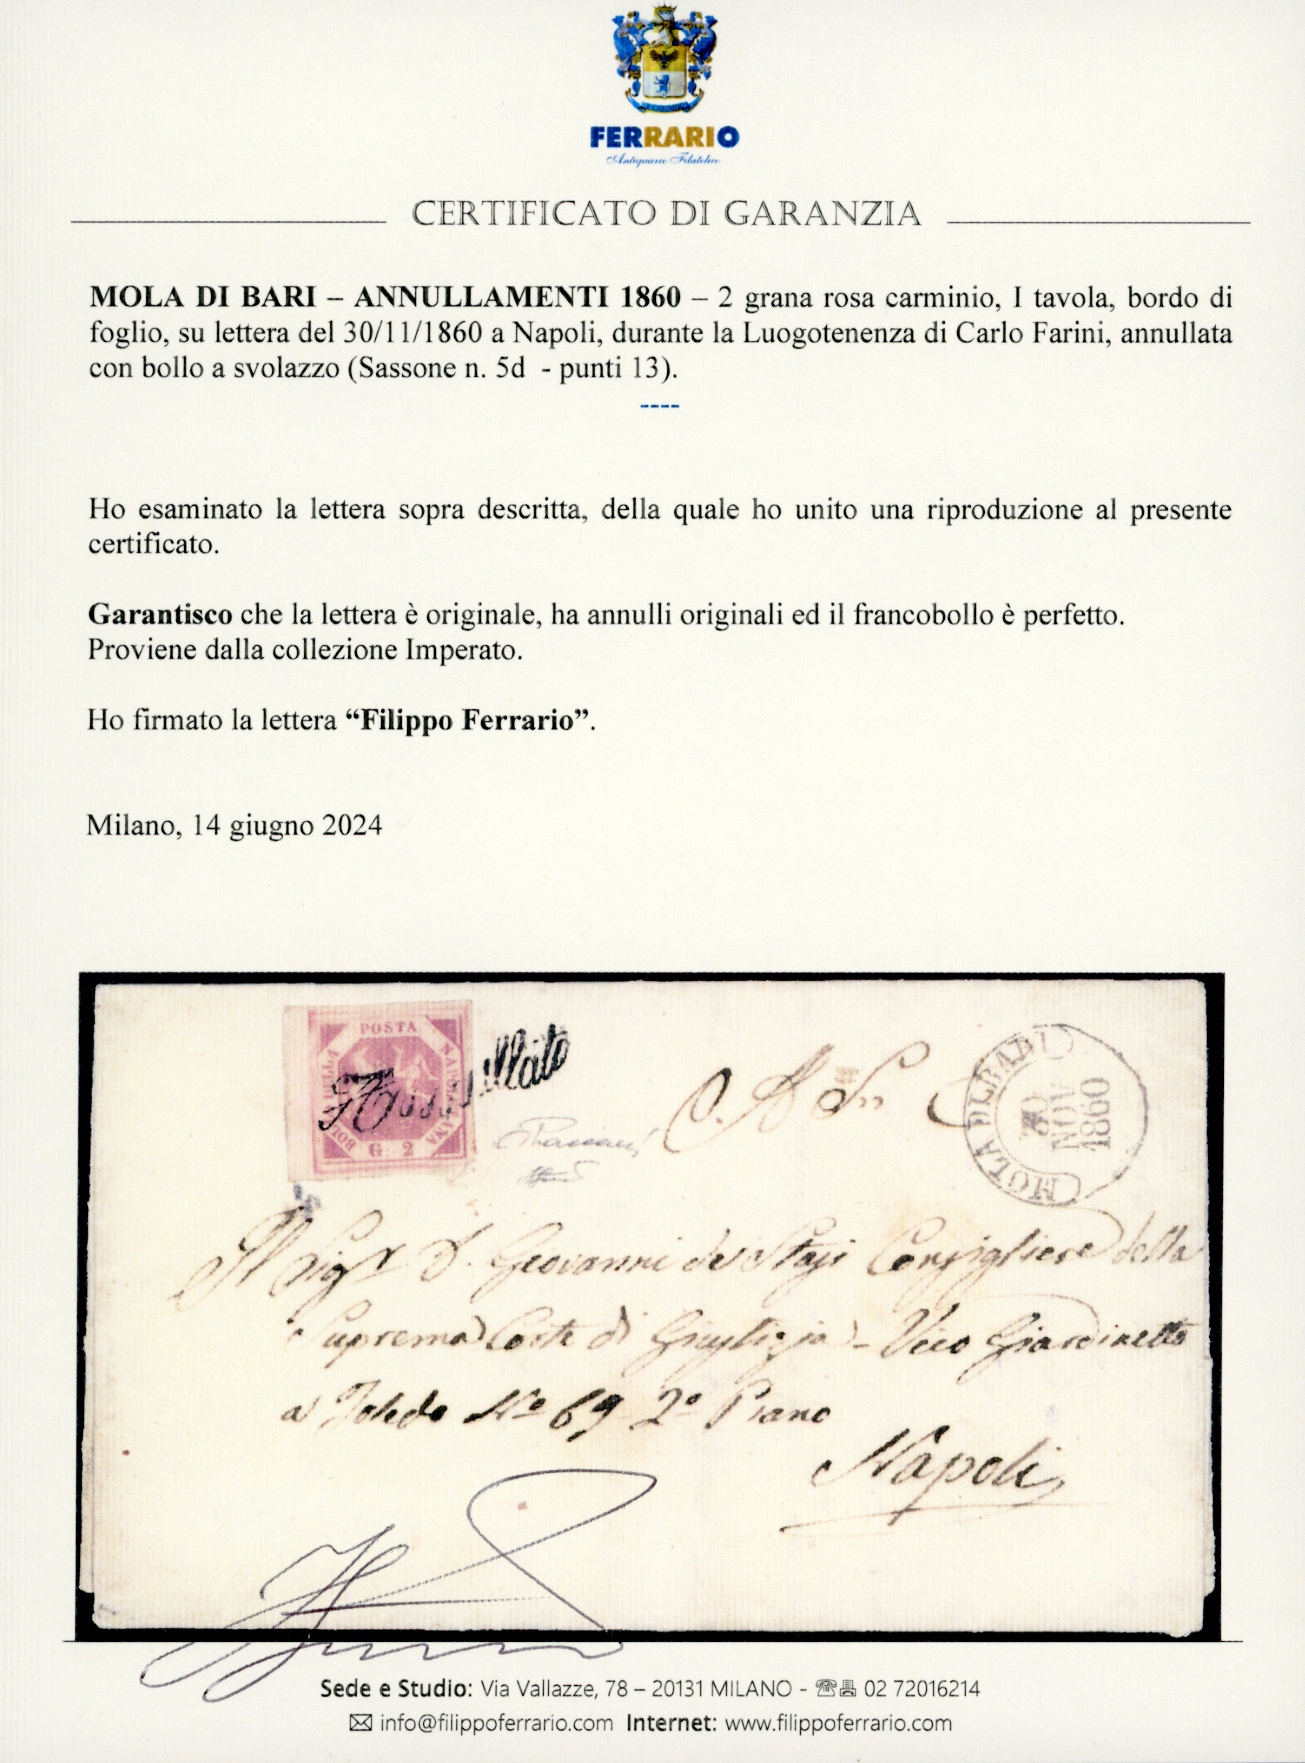 FERRARIO
Antiquario Filatelico
CERTIFICATO DI GARANZIA
MOLA DI BARI – ANNULLAMENTI 1860 – 2 grana rosa carminio, I tavola, bordo di
foglio, su lettera del 30/11/1860 a Napoli, durante la Luogotenenza di Carlo Farini, annullata
con bollo a svolazzo (Sassone n. 5d - punti 13).
----
Ho esaminato la lettera sopra descritta, della quale ho unito una riproduzione al presente
certificato.
Garantisco che la lettera è originale, ha annulli originali ed il francobollo è perfetto.
Proviene dalla collezione Imperato.
Ho firmato la lettera “Filippo Ferrario”.
Milano, 14 giugno 2024
POSTA
NAPOLETANA
BOLLO DELLA
G 2
Annullato
MOLA DI BARI
30
NOV
1860
Al Sigr D. Giovanni de Stasi Consigliere della
Suprema Corte di Giustizia - Vico Giardinetto
a Toledo No 69 2o Piano
Napoli
Sede e Studio: Via Vallazze, 78 – 20131 MILANO - 02 72016214
info@filippoferrario.com Internet: www.filippoferrario.com